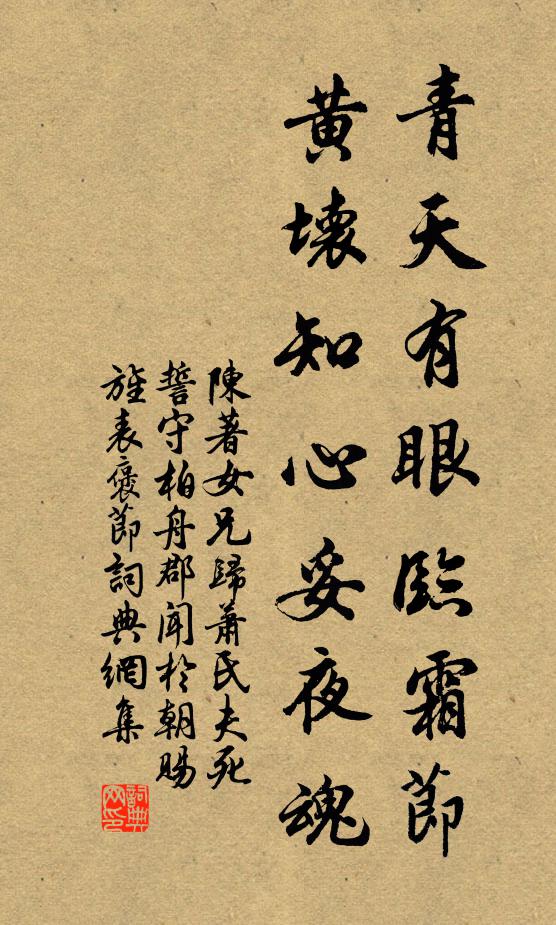 青天有眼臨霜節
黃壞知心妥夜魂
陳著女兄歸蕭氏夫死
誓守柏舟郡聞於朝賜
旌表褒節詞典網集
詞典網印